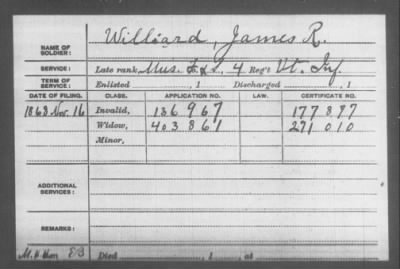 NAME OF SOLDIER: Williard, James R.
SERVICE: Late rank, Mus. F & S, 4 Reg't Vt. Inf.
TERM OF SERVICE: Enlisted , 1 Discharged , 1
DATE OF FILING. CLASS. APPLICATION NO. LAW. CERTIFICATE NO.
1868 Nov. 16 Invalid, 136 967 177 887
Widow, 403 861 271 010
Minor,
ADDITIONAL SERVICES:
REMARKS:
Died , 1 , at